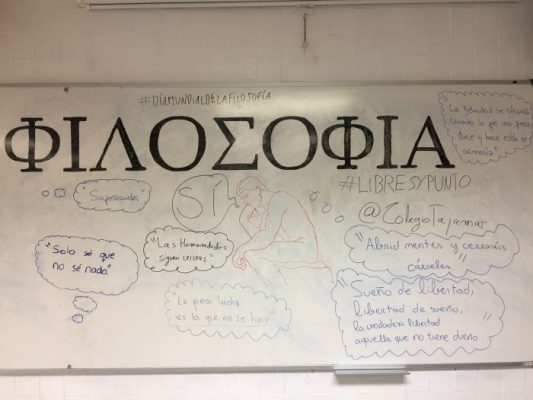 #DÍAMUNDIALDELAFILOSOFÍA
ΦΙΛΟΣΟΦΙΑ
"La felicidad se alcanza
cuando lo que uno piensa,
dice y hace están en
armonía"
#LIBRESYPUNTO
@ColegioTajamar
"Sapereaude"
SÍ
"Las Humanidades
siguen vivas"
"Solo sé que
no sé nada"
"La peor lucha
es la que no se hace"
"Abrid mentes y cerraréis
cárceles"
"Sueño de libertad,
libertad de sueño,
la verdadera libertad
aquella que no tiene dueño"